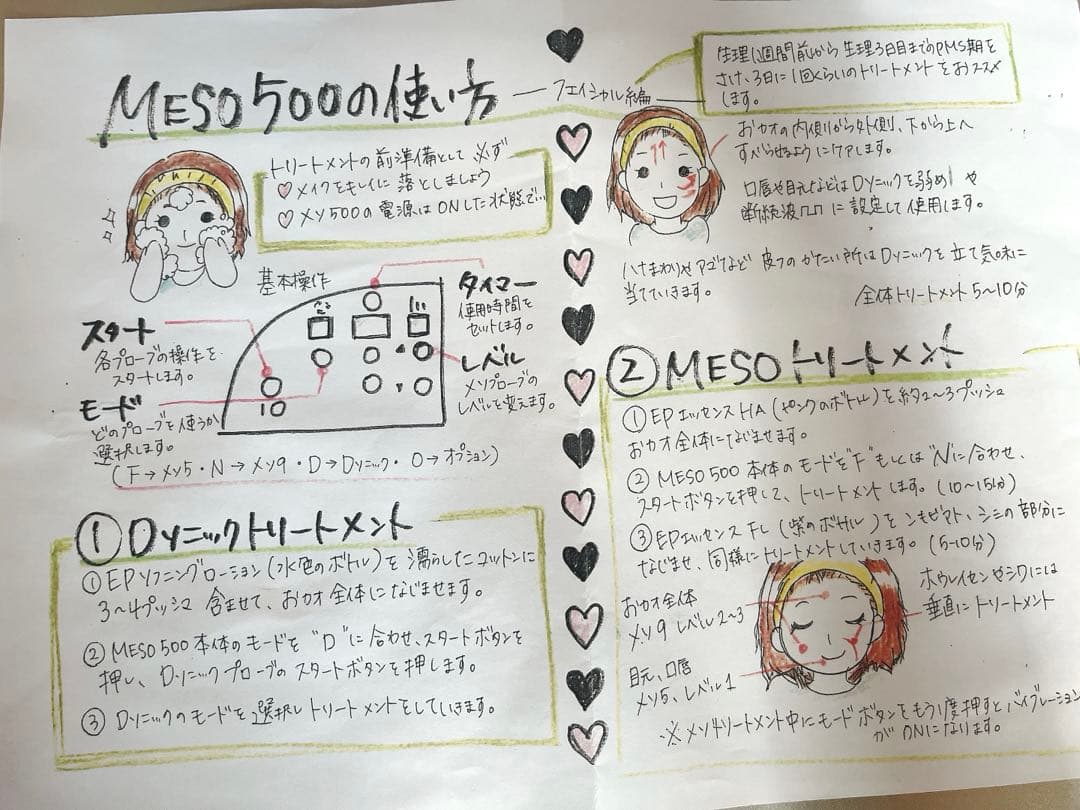 MESO500の使い方
フェイシャル編
トリートメントの前準備として必ず
♡メイクをキレイに落としましょう
♡メソ500の電源はONした状態で…
基本操作
タイマー
使用時間を
セットします。
スタート
各プローブの操作を
スタートします。
レベル
メソプローブの
レベルを変えます。
モード
どのプローブを使うか
選択します。
(F→メソ5・N→メソ9・D→Dソニック・O→オプション)
①Dソニックトリートメント
①EPソフニングローション(水色のボトル)を濡らしたコットンに
3〜4プッシュ含ませて、おカオ全体になじませます。
②MESO500本体のモードを"D"に合わせ、スタートボタンを
押し、Dソニックプローブのスタートボタンを押します。
③Dソニックのモードを選択しトリートメントをしていきます。
生理1週間前から生理3日目までのPMS期を
さけ、3日に1回くらいのトリートメントをおススメ
します。
おカオの内側から外側、下から上へ
すべらせるようにケアします。
口唇や目元などはDソニックを弱めや
断続波に設定して使用します。
ハナまわりやアゴなど皮フのかたい所はDソニックを立て気味に
当てていきます。
全体トリートメント5〜10分
②MESOトリートメント
①EPエッセンスHA(ピンクのボトル)を約2〜3プッシュ
おカオ全体になじませます。
②MESO500本体のモードを"F"もしくは"N"に合わせ、
スタートボタンを押して、トリートメントします。(10〜15分)
③EPエッセンスFL(紫のボトル)をンモビマト、シミの部分に
なじませ、同様にトリートメントしていきます。(5-10分)
おカオ全体
メソ9レベル2〜3
ホウレイセンやシワには
垂直にトリートメント
目元、口唇
メソ5、レベル1
※メソトリートメント中にモードボタンをもう1度押すとバイブレーション
がONになります。